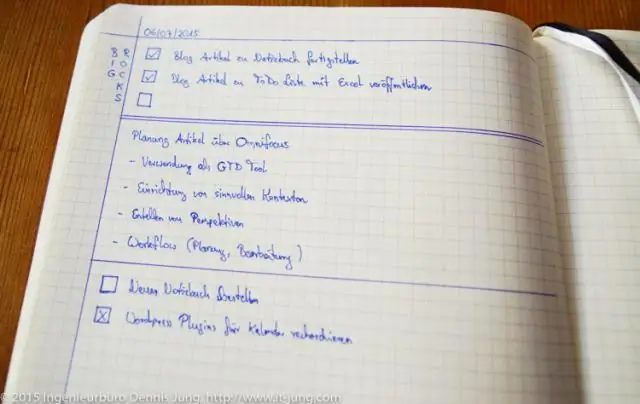 06/07/2015
BIG ROCKS
Blog Artikel zu Notizbuch fertigstellen
Blog Artikel zu ToDo Liste mit Excel veröffentlichen
Planung Artikel über Omnifocus
- Verwendung als GTD Tool
- Einrichtung von sinnvollen Kontexten
- Erstellen von Perspektiven
- Workflow (Planung, Bearbeitung)
Neues Notizbuch bestellen
Wordpress Plugins für Kalender recherchieren
© 2015 Ingenieurbüro Dennis Jung, http://www.it-jung.com